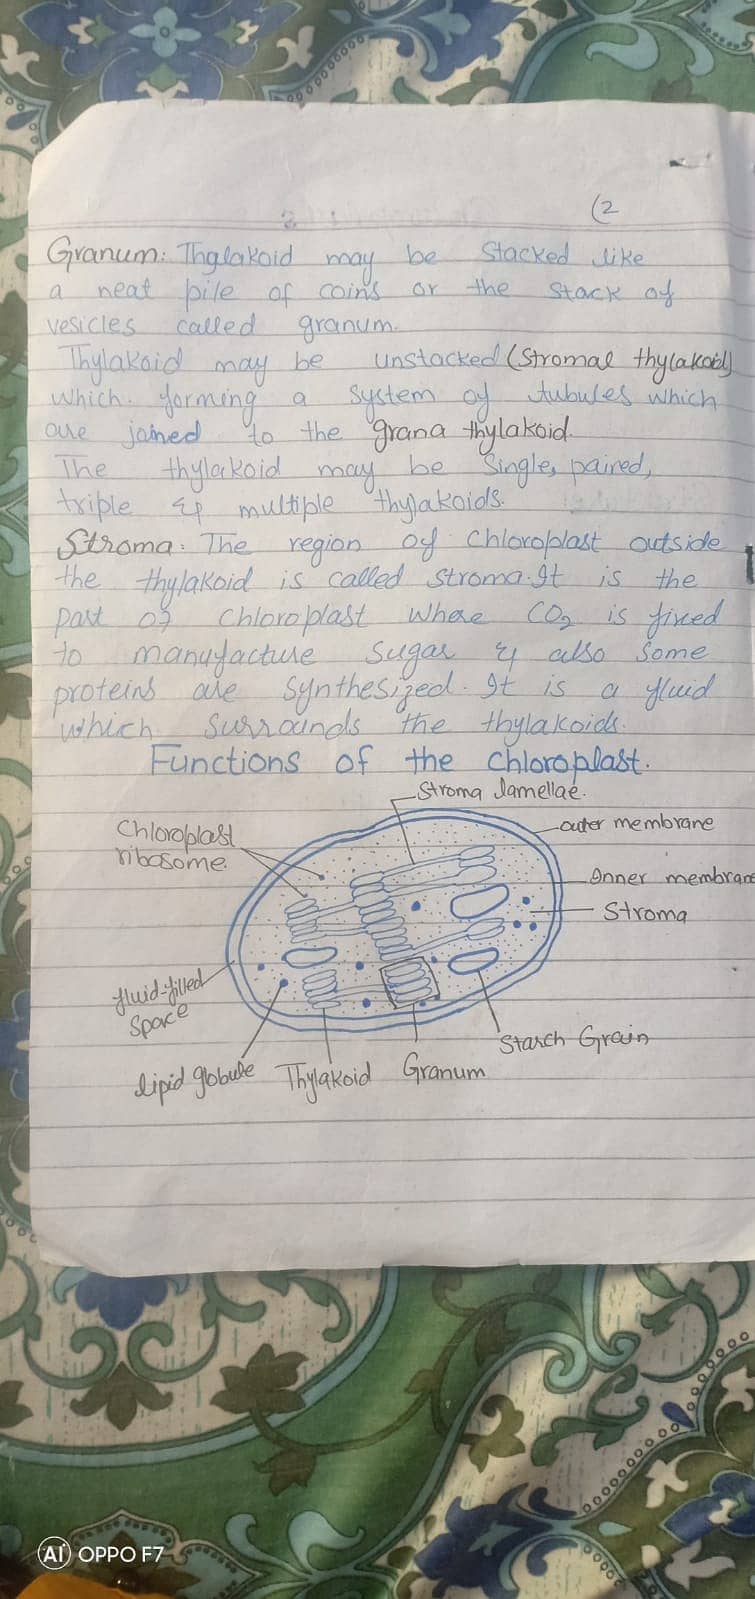 (2
Granum: Thylakoid may be Stacked like
a neat pile of coins or the stack of
vesicles called granum.
Thylakoid may be unstacked (Stromal thylakoid)
which forming a system of tubules which
are joined to the grana thylakoid.
The thylakoid may be Single, paired,
triple & multiple thylakoids.
Stroma: The region of Chloroplast outside
the thylakoid is called stroma. It is the
part of Chloroplast where CO2 is fixed
to manufacture sugar & also some
proteins are synthesized. It is a fluid
which surrounds the thylakoids.
Functions of the chloroplast.
Stroma lamellae.
Chloroplast
ribosome.
outer membrane
Inner membrane
Stroma
fluid-filled
Space
Starch Grain
lipid globule
Thylakoid
Granum
AI OPPO F7